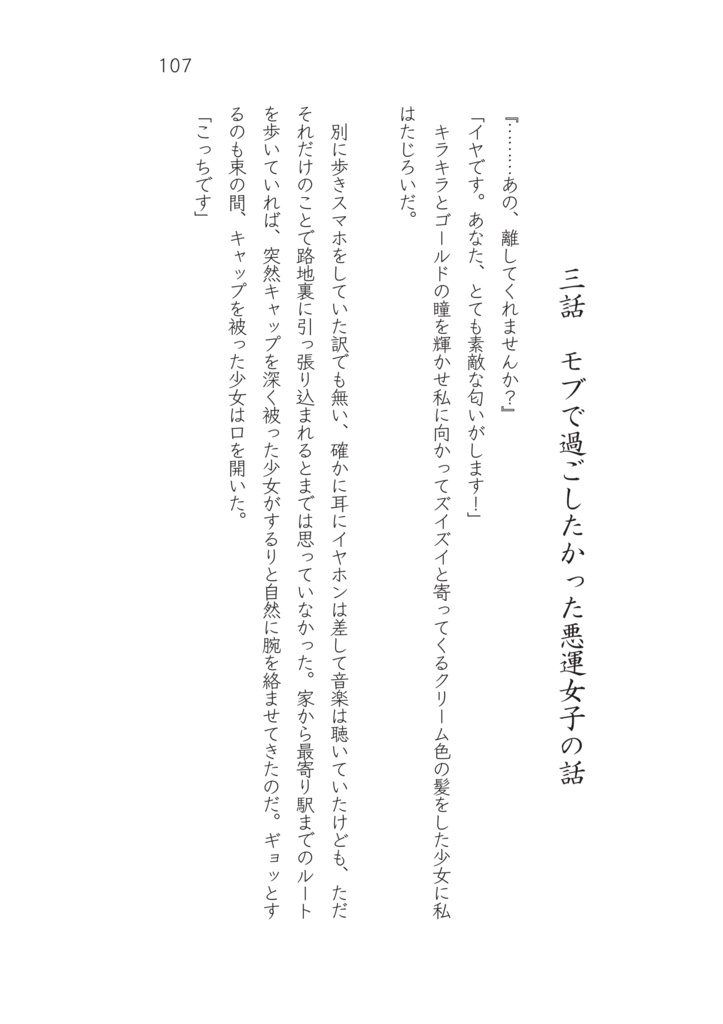 107
三話　モブで過ごしたかった悪運女子の話
『………あの、離してくれませんか？』
「イヤです。あなた、とても素敵な匂いがします！」
　キラキラとゴールドの瞳を輝かせ私に向かってズイズイと寄ってくるクリーム色の髪をした少女に私
はたじろいだ。
　別に歩きスマホをしていた訳でも無い、確かに耳にイヤホンは差して音楽は聴いていたけども、ただ
それだけのことで路地裏に引っ張り込まれるとまでは思っていなかった。家から最寄り駅までのルート
を歩いていれば、突然キャップを深く被った少女がするりと自然に腕を絡ませてきたのだ。ギョッとす
るのも束の間、キャップを被った少女は口を開いた。
「こっちです」